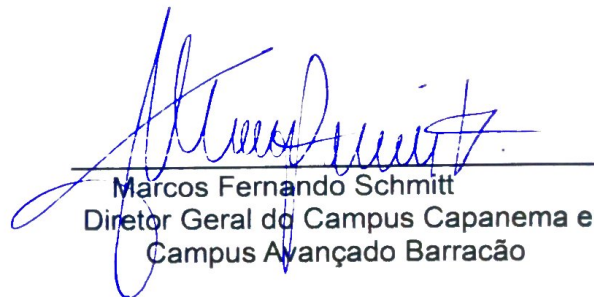 Marcos Fernando Schmitt
Diretor Geral do Campus Capanema e
Campus Avançado Barracão